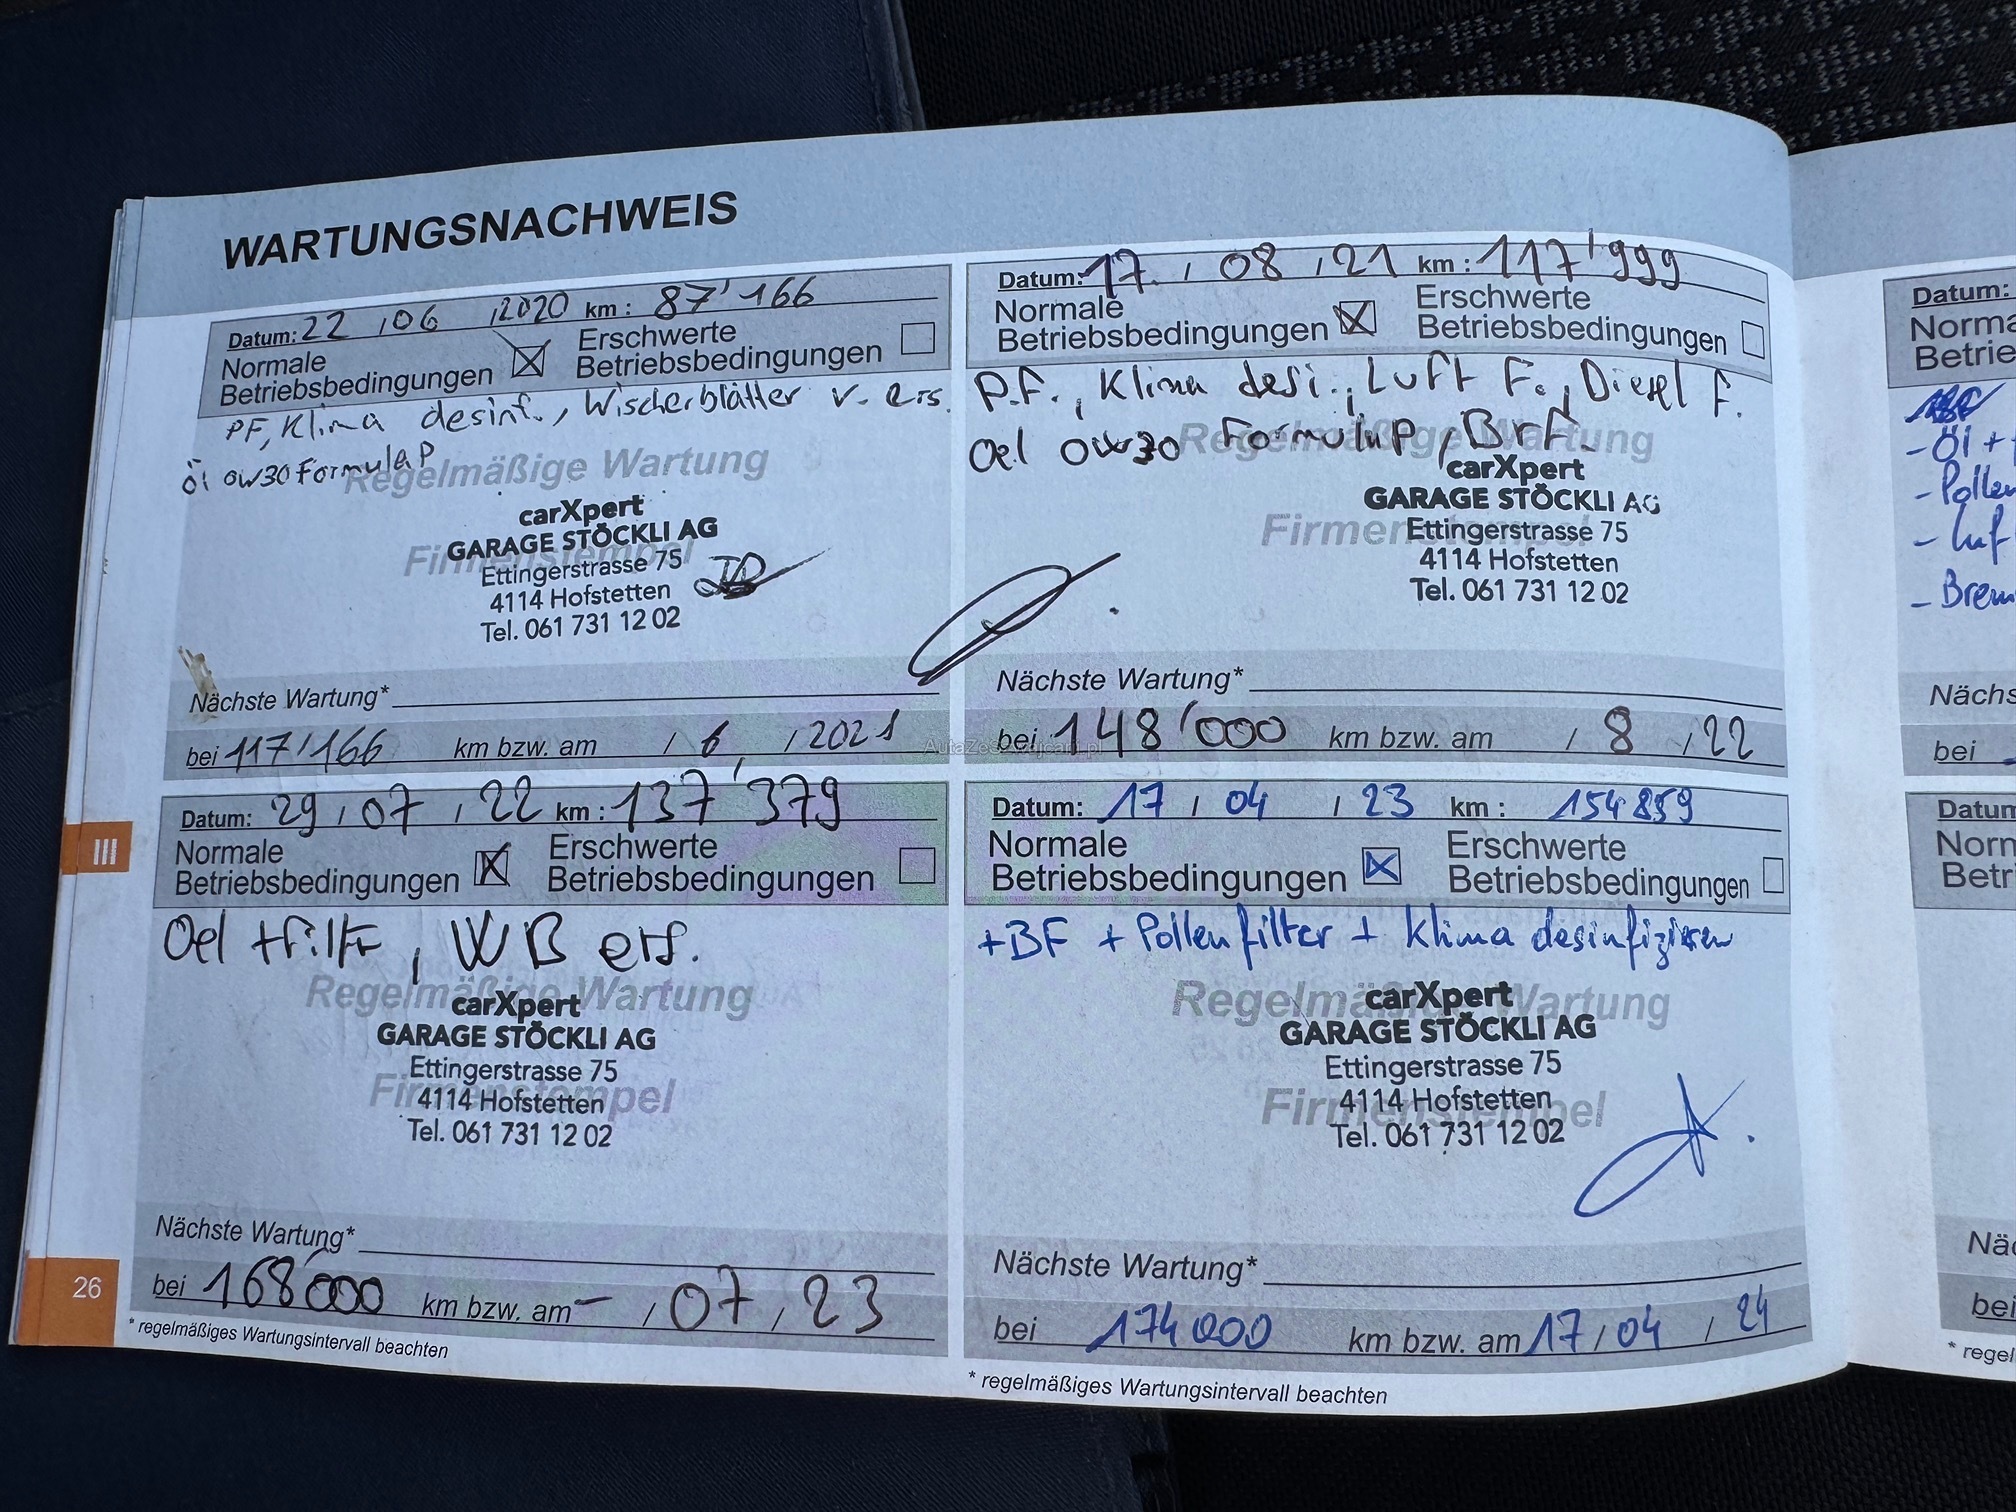 WARTUNGSNACHWEIS
Datum: 22 / 06 / 2020 km : 87'166
Normale
Betriebsbedingungen
Erschwerte
Betriebsbedingungen
PF, Klima desinf., Wischerblätter v. ers.
Öl 0W30 Formula P
Regelmäßige Wartung
carXpert
GARAGE STÖCKLI AG
Firmenstempel
Ettingerstrasse 75
4114 Hofstetten
Tel. 061 731 12 02
Nächste Wartung*
bei 117'166 km bzw. am / 6 / 2021
Datum: 17. / 08 / 21 km : 117'999
Normale
Betriebsbedingungen
Erschwerte
Betriebsbedingungen
P.F., Klima desi., Luft F., Diesel F.
Oel 0W30 Formula P, BrF.
Regelmäßige Wartung
carXpert
GARAGE STÖCKLI AG
Firmenstempel
Ettingerstrasse 75
4114 Hofstetten
Tel. 061 731 12 02
Nächste Wartung*
bei 148'000 km bzw. am / 8 / 22
AutaZeSzwajcarii.pl
Datum: 29 / 07 / 22 km : 137'379
Normale
Betriebsbedingungen
Erschwerte
Betriebsbedingungen
Oel + Filter, WB ers.
Regelmäßige Wartung
carXpert
GARAGE STÖCKLI AG
Ettingerstrasse 75
Firmenstempel
4114 Hofstetten
Tel. 061 731 12 02
Nächste Wartung*
bei 168'000 km bzw. am - / 07 / 23
* regelmäßiges Wartungsintervall beachten
Datum: 17 / 04 / 23 km : 154859
Normale
Betriebsbedingungen
Erschwerte
Betriebsbedingungen
+BF + Pollenfilter + Klima desinfizieren
Regelmäßige Wartung
carXpert
GARAGE STÖCKLI AG
Ettingerstrasse 75
Firmenstempel
4114 Hofstetten
Tel. 061 731 12 02
Nächste Wartung*
bei 174000 km bzw. am 17 / 04 / 24
* regelmäßiges Wartungsintervall beachten
III
26
Datum:
Norma
Betrie
- Öl +
- Pollen
- Luf
- Brem
Nächs
bei
Datum
Norn
Betr
Näc
bei
* regel